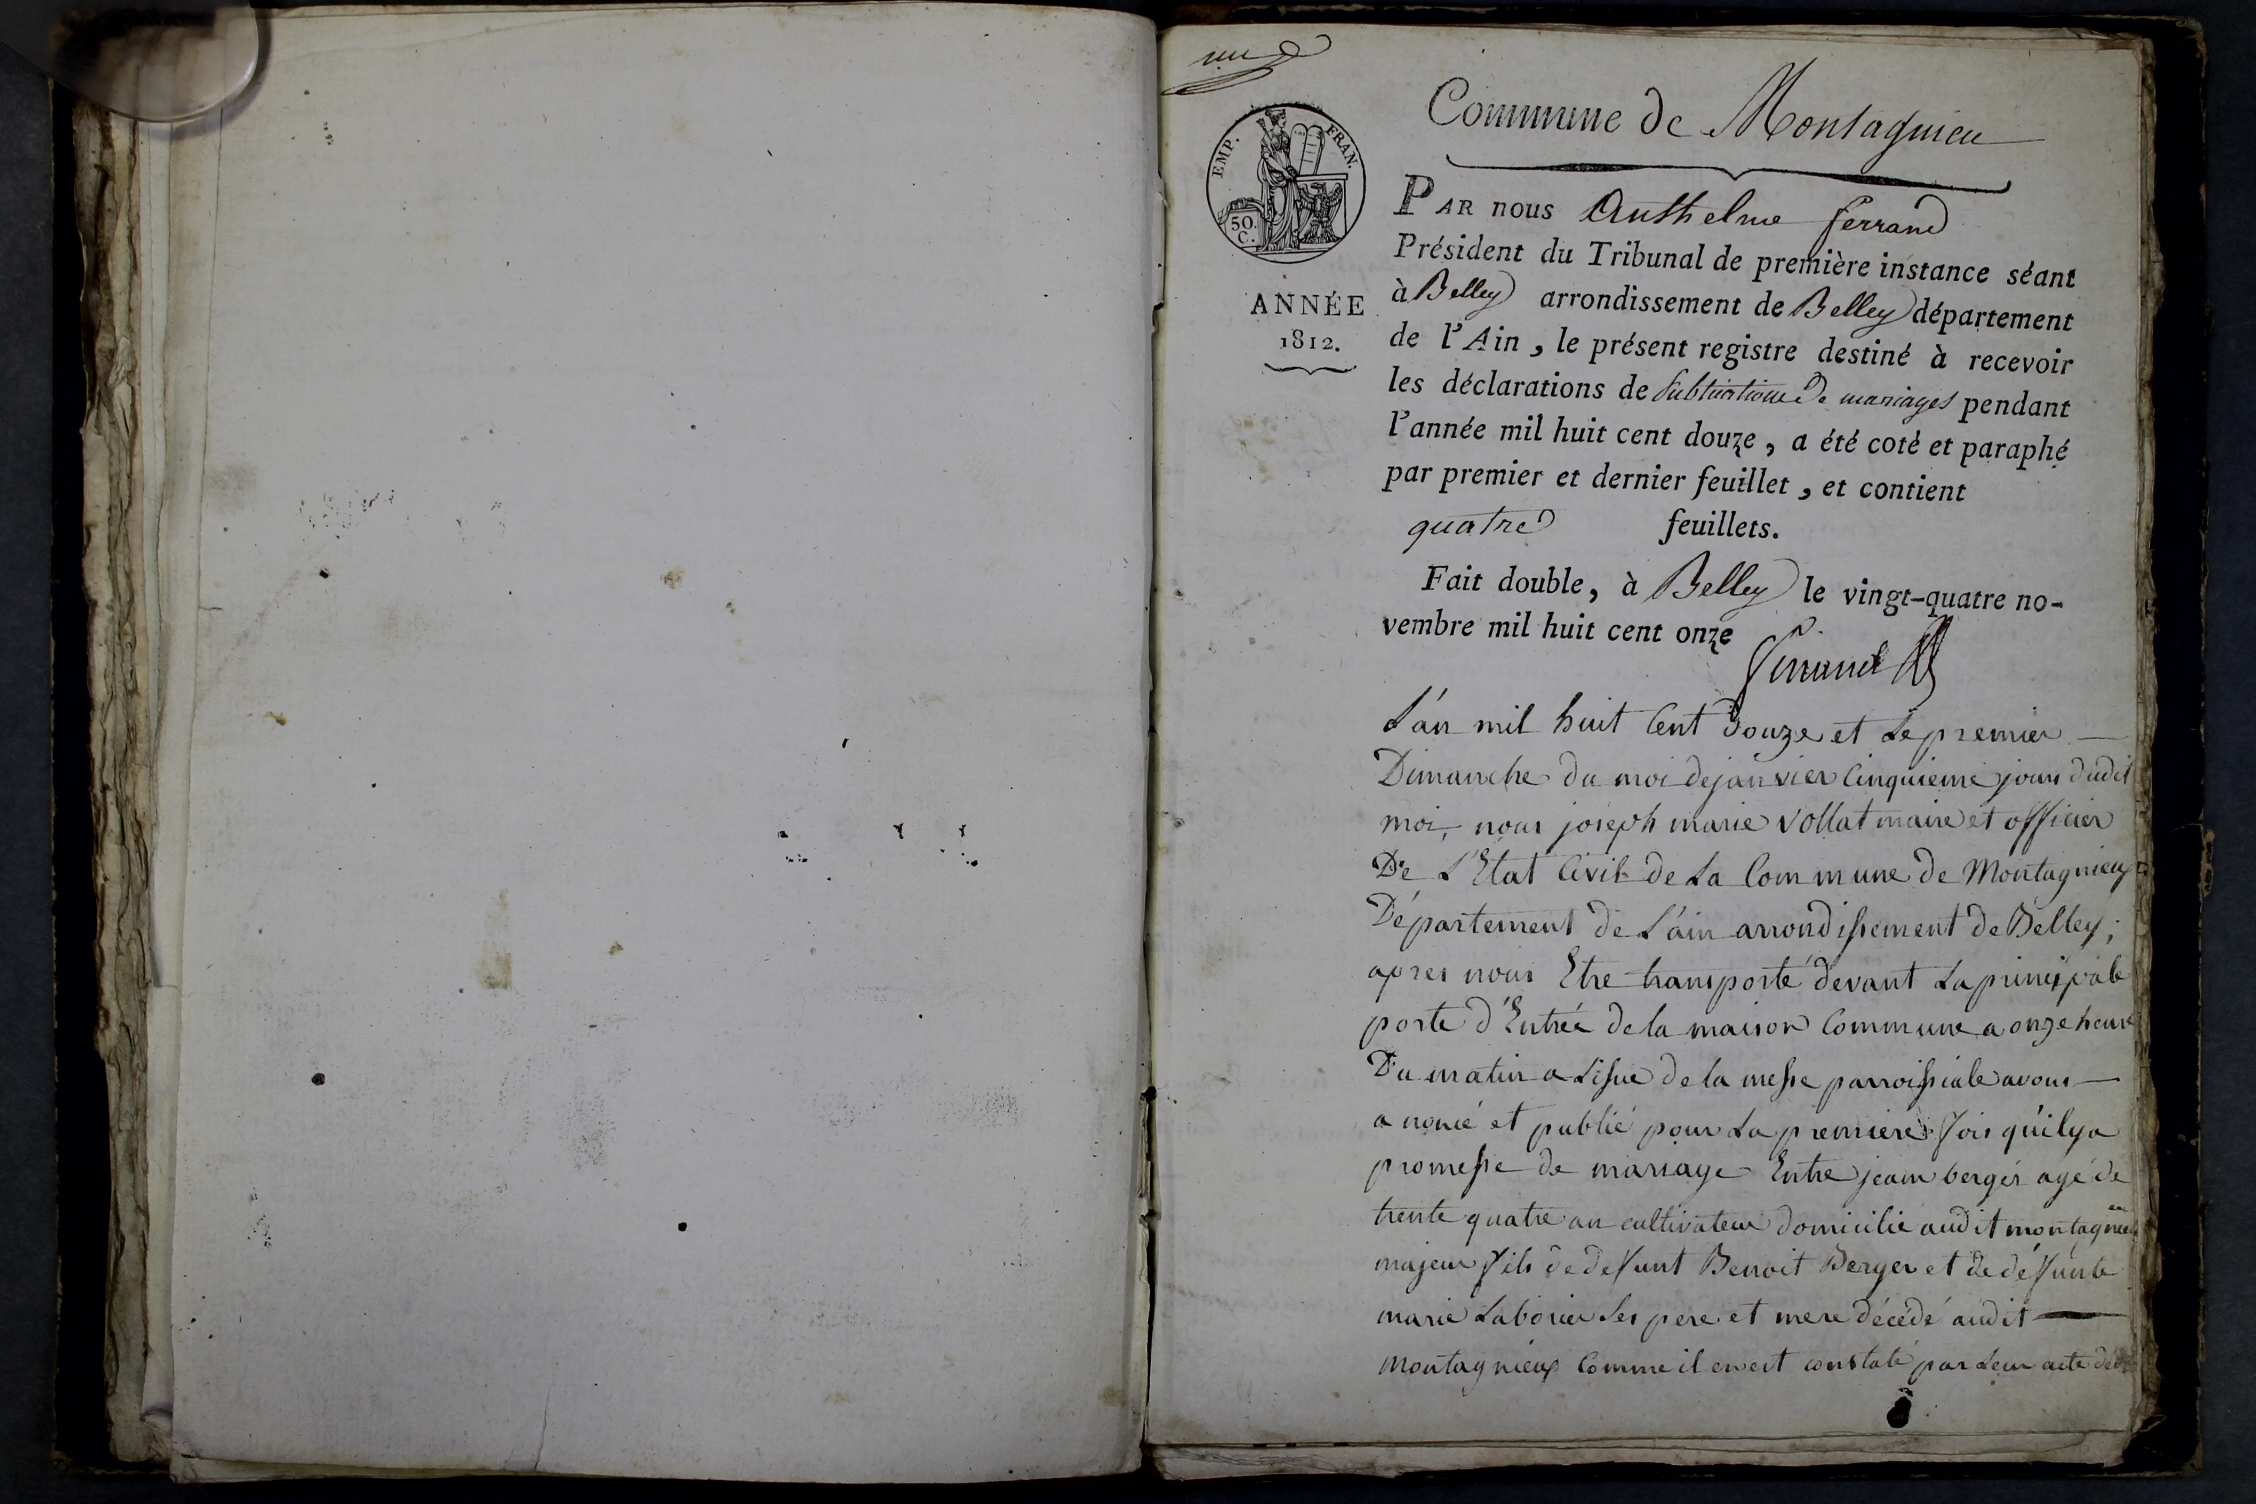 un
Commune de Montagnieu
EMP. FRAN.
50. C.
ANNÉE
1812.
PAR nous Anthelme ferrand
Président du Tribunal de première instance séant
à Belley arrondissement de Belley département
de l'Ain, le présent registre destiné à recevoir
les déclarations de publications de mariages pendant
l'année mil huit cent douze, a été coté et paraphé
par premier et dernier feuillet, et contient
quatre feuillets.
Fait double, à Belley le vingt-quatre no-
vembre mil huit cent onze
Ferrand
L'an mil huit Cent Douze et Le premier
Dimanche du moi de janvier Cinquieme jours dudit
moi, nous joseph marie vollat maire et officier
De L'Etat Civil de La Commune de Montagnieux
Département de L'ain arrondissement de Belley;
apres nous Etre transporté devant La principale
porte d'Entrée de la maison Commune a onze heure
Du matin a Lissue de la messe parroissiale avons
a noncé et publié pour La premiere fois qu'il y a
promesse de mariage Entre jean berger agé de
trente quatre an cultivateur domicilié audit montagnieu
majeur fils de defunt Benoit Berger et de défunte
marie Laborier Ses pere et mere décédé audit
montagnieux Comme il en est constaté par Leur acte de